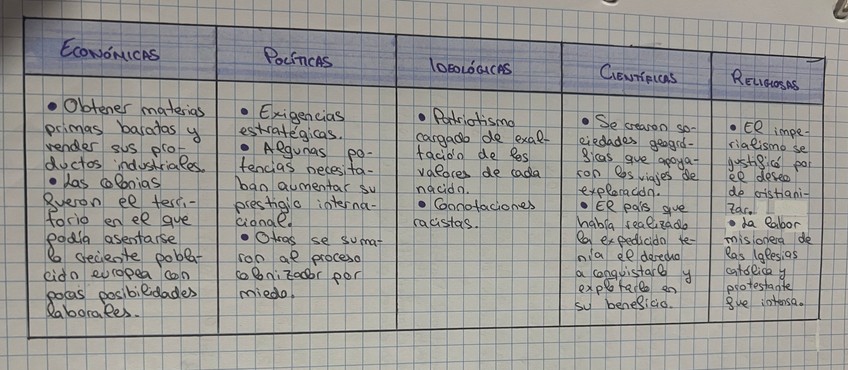 ECONÓMICAS
• Obtener materias
primas baratas y
vender sus pro-
ductos industriales.
• Las colonias
fueron el terri-
torio en el que
podía asentarse
la creciente pobla-
ción europea con
pocas posibilidades
laborales.
POLÍTICAS
• Exigencias
estratégicas.
• Algunas po-
tencias necesita-
ban aumentar su
prestigio interna-
cional.
• Otras se suma-
ron al proceso
colonizador por
miedo.
IDEOLÓGICAS
• Patriotismo
cargado de exal-
tación de los
valores de cada
nación.
• Connotaciones
racistas.
CIENTÍFICAS
• Se crearon so-
ciedades geográ-
ficas que apoya-
ron los viajes de
exploración.
• El país que
había realizado
la expedición te-
nía el derecho
a conquistarlo y
explotarlo en
su beneficio.
RELIGIOSAS
• El impe-
rialismo se
justificó por
el deseo
de cristiani-
zar.
• La labor
misionera de
las Iglesias
católica y
protestante
fue intensa.